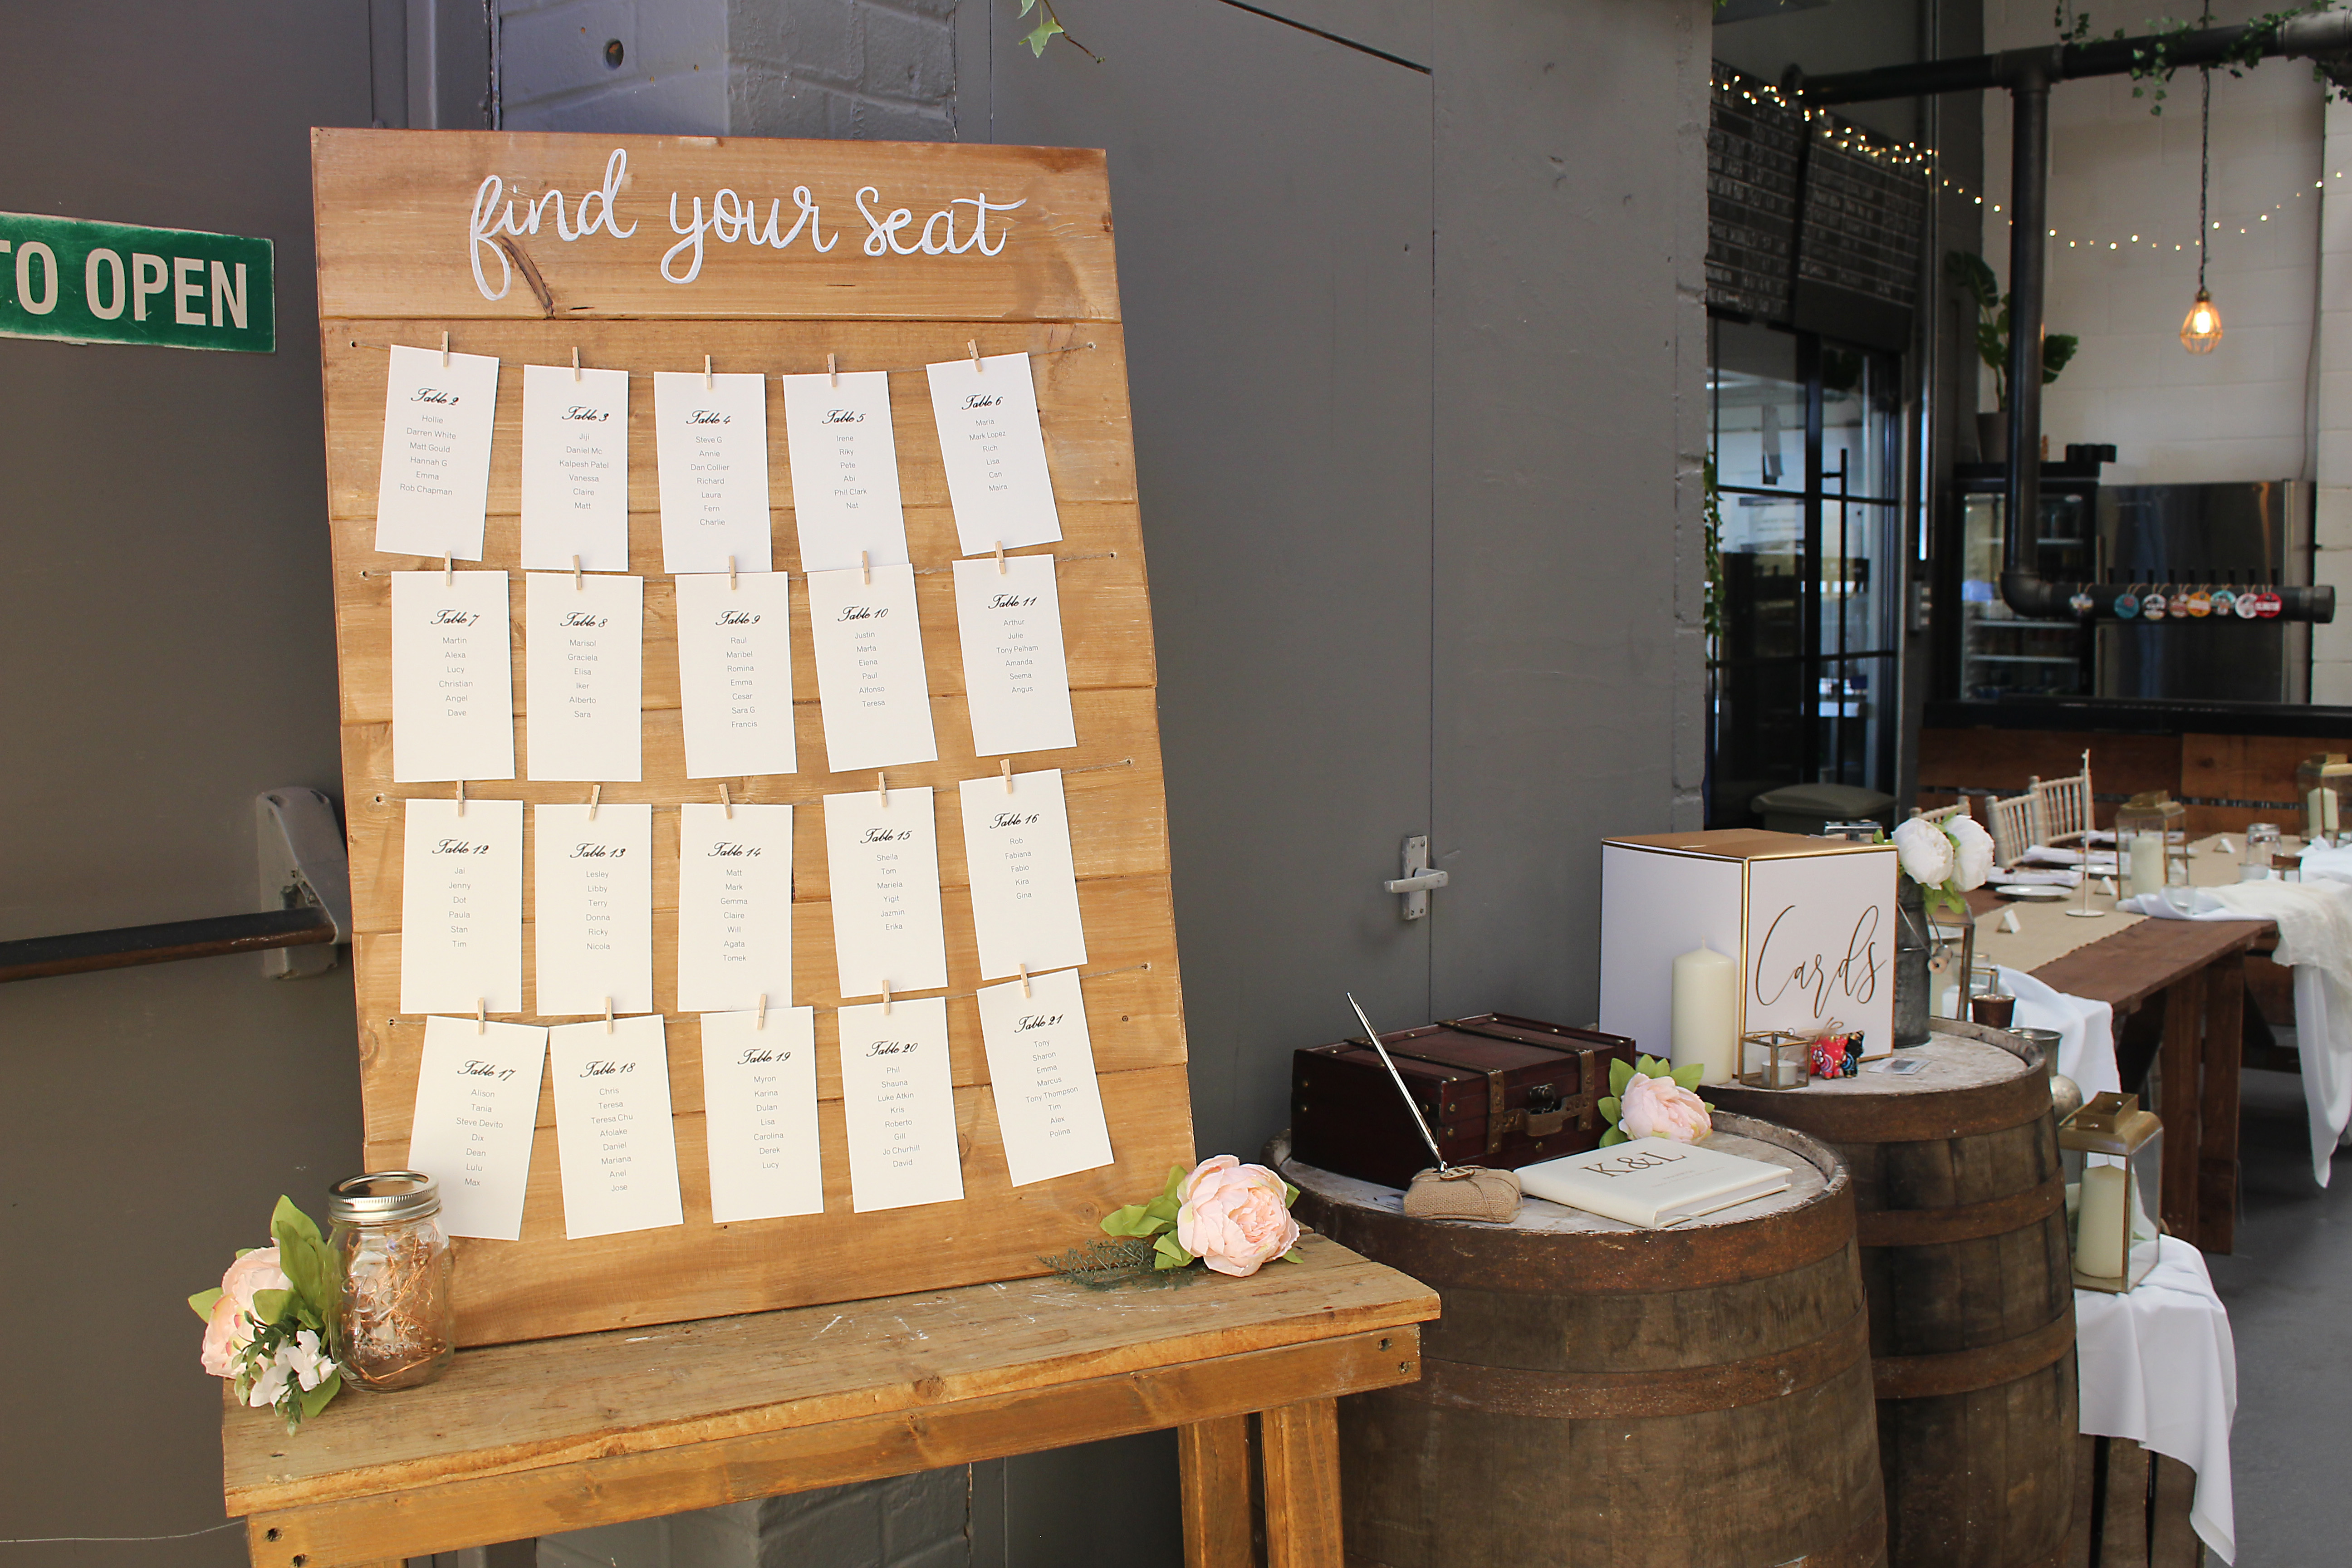 TO OPEN
find your seat
Table 2
Hollie
Darren White
Matt Gould
Hannah G
Emma
Rob Chapman
Table 3
Jiji
Daniel Mc
Kalpesh Patel
Vanessa
Claire
Matt
Table 4
Steve G
Annie
Dan Collier
Richard
Laura
Fern
Charlie
Table 5
Irene
Riky
Pete
Abi
Phil Clark
Nat
Table 6
Maria
Mark Lopez
Rich
Lisa
Can
Maira
Table 7
Martin
Alexa
Lucy
Christian
Angel
Dave
Table 8
Marisol
Graciela
Elisa
Iker
Alberto
Sara
Table 9
Raul
Maribel
Romina
Emma
Cesar
Sara G
Francis
Table 10
Justin
Marta
Elena
Paul
Alfonso
Teresa
Table 11
Arthur
Julie
Tony Pelham
Amanda
Seema
Angus
Table 12
Jai
Jenny
Dot
Paula
Stan
Tim
Table 13
Lesley
Libby
Terry
Donna
Ricky
Nicola
Table 14
Matt
Mark
Gemma
Claire
Will
Agata
Tomek
Table 15
Sheila
Tom
Mariela
Yigit
Jazmin
Erika
Table 16
Rob
Fabiana
Fabio
Kira
Gina
Table 17
Alison
Tania
Steve Devito
Dix
Dean
Lulu
Max
Table 18
Chris
Teresa
Teresa Chu
Afolake
Daniel
Mariana
Anel
Jose
Table 19
Myron
Karina
Dulan
Lisa
Carolina
Derek
Lucy
Table 20
Phil
Shauna
Luke Atkin
Kris
Roberto
Gill
Jo Churhill
David
Table 21
Tony
Sharon
Emma
Marcus
Tony Thompson
Tim
Alex
Polina
Cards
K&L